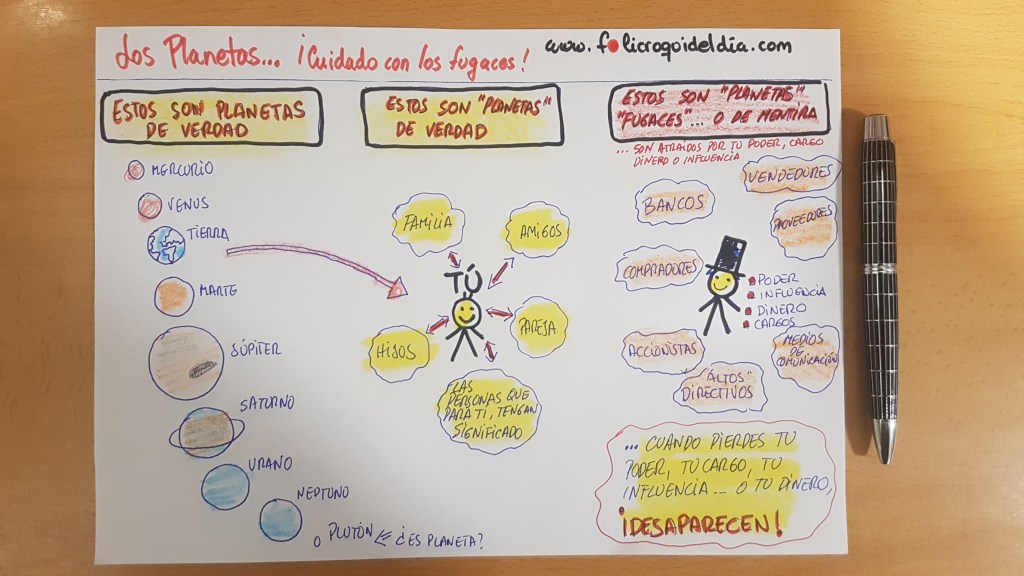 Los Planetas... ¡Cuidado con los fugaces!
www.folicragoideldía.com
ESTOS SON PLANETAS
DE VERDAD
MERCURIO
VENUS
TIERRA
MARTE
JÚPITER
SATURNO
URANO
NEPTUNO
O PLUTÓN ¿ES PLANETA?
ESTOS SON "PLANETAS"
DE VERDAD
FAMILIA
AMIGOS
TÚ
HIJOS
PAREJA
LAS
PERSONAS QUE
PARA TI, TENGAN
SIGNIFICADO
ESTOS SON "PLANETAS"
"FUGACES"... O DE MENTIRA
... SON ATRAIDOS POR TU PODER, CARGO
DINERO O INFLUENCIA
VENDEDORES
BANCOS
PROVEEDORES
COMPRADORES
PODER
INFLUENCIA
DINERO
CARGOS
ACCIONISTAS
MEDIOS
DE
COMUNICACIÓN
ALTOS
DIRECTIVOS
... CUANDO PIERDES TU
PODER, TU CARGO, TU
INFLUENCIA... O TU DINERO,
¡DESAPARECEN!